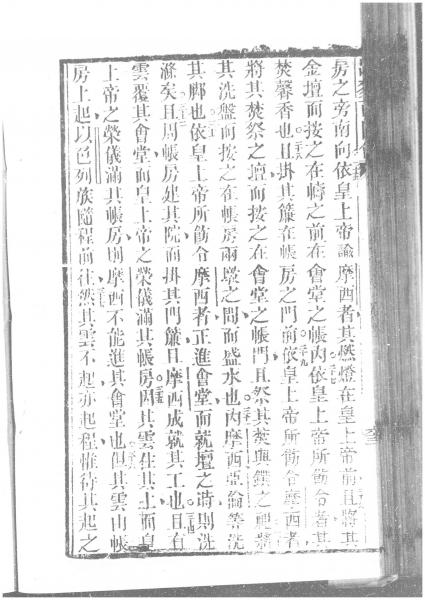 房之旁南向依皇上帝諭摩西者其燃燈在皇上帝前且將其
金壇而按之在幬之前在會堂之帳內依皇上帝所飭令者其
焚馨香也且掛其簾在帳房之門前依皇上帝所飭令摩西者
將其焚祭之壇而按之在會堂之帳門且祭其焚與饌之禮祭
其洗盤而按之在帳房兩壇之間而盛水也內摩西亞倫等洗
其脚也依皇上帝所飭令摩西者正進會堂而就壇之時則洗
滌矣且周帳房建其院而掛其門簾且摩西成就其工也且有
雲覆其會堂而皇上帝之榮儀滿其帳房因其雲住其上而皇
上帝之榮儀滿其帳房則摩西不能進其會堂也但其雲由帳
房上起以色列族隨程前往然其雲不起亦起程惟待其起之